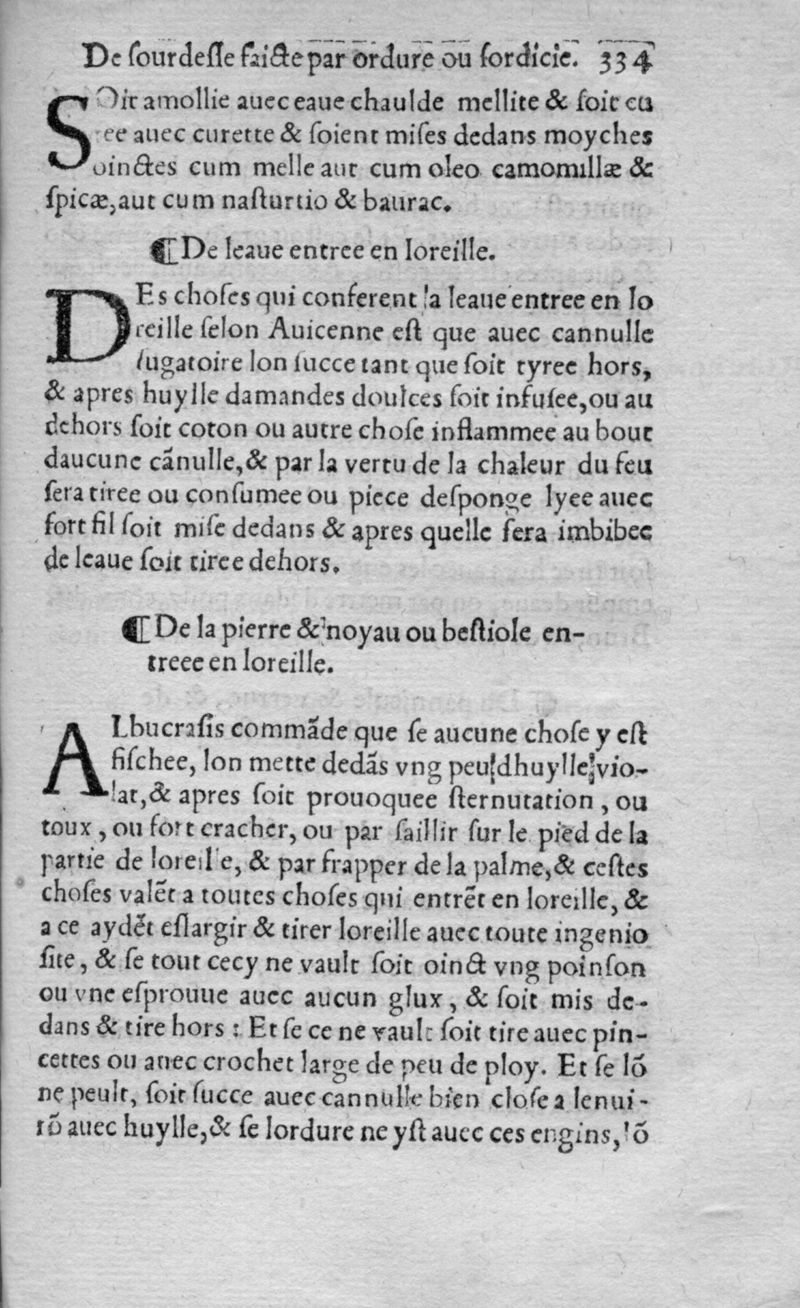 De ſourdeſſe faicte par ordure ou ſordicie. 334
SOit amollie auec eaue chaulde mellite & ſoit cu
ree auec curette & ſoient miſes dedans moyches
oinctes cum melle aut cum oleo camomillæ &
ſpicæ, aut cum naſturtio & baurac.
¶ De leaue entree en loreille.
DEs choſes qui conferent a leaue entree en lo
reille ſelon Auicenne eſt que auec cannulle
ſugatoire lon ſucce tant que ſoit tyree hors,
& apres huylle damandes doulces ſoit infuſee, ou au
dehors ſoit coton ou autre choſe inflammee au bout
daucune cãnulle, & par la vertu de la chaleur du feu
ſera tiree ou conſumee ou piece deſponge lyee auec
fort fil ſoit miſe dedans & apres quelle ſera imbibee
de leaue ſoit tiree dehors.
¶ De la pierre & noyau ou beſtiole en-
treee en loreille.
ALbucraſis commãde que ſe aucune choſe y eſt
fiſchee, lon mette dedãs vng peu dhuylle vio-
lat, & apres ſoit prouoquee ſternutation, ou
toux, ou fort cracher, ou par ſaillir ſur le pied de la
partie de loreille, & par frapper de la palme, & ceſtes
choſes valẽt a toutes choſes qui entrẽt en loreille, &
a ce aydẽt eſlargir & tirer loreille auec toute ingenio
ſite, & ſe tout cecy ne vault ſoit oinct vng poinſon
ou vne eſprouue auec aucun glux, & ſoit mis de-
dans & tire hors : Et ſe ce ne vault ſoit tire auec pin-
cettes ou auec crochet large de peu de ploy. Et ſe lõ
ne peult, ſoit ſucce auec cannulle bien cloſe a lenui-
rõ auec huylle, & ſe lordure ne yſt auec ces engins, lõ